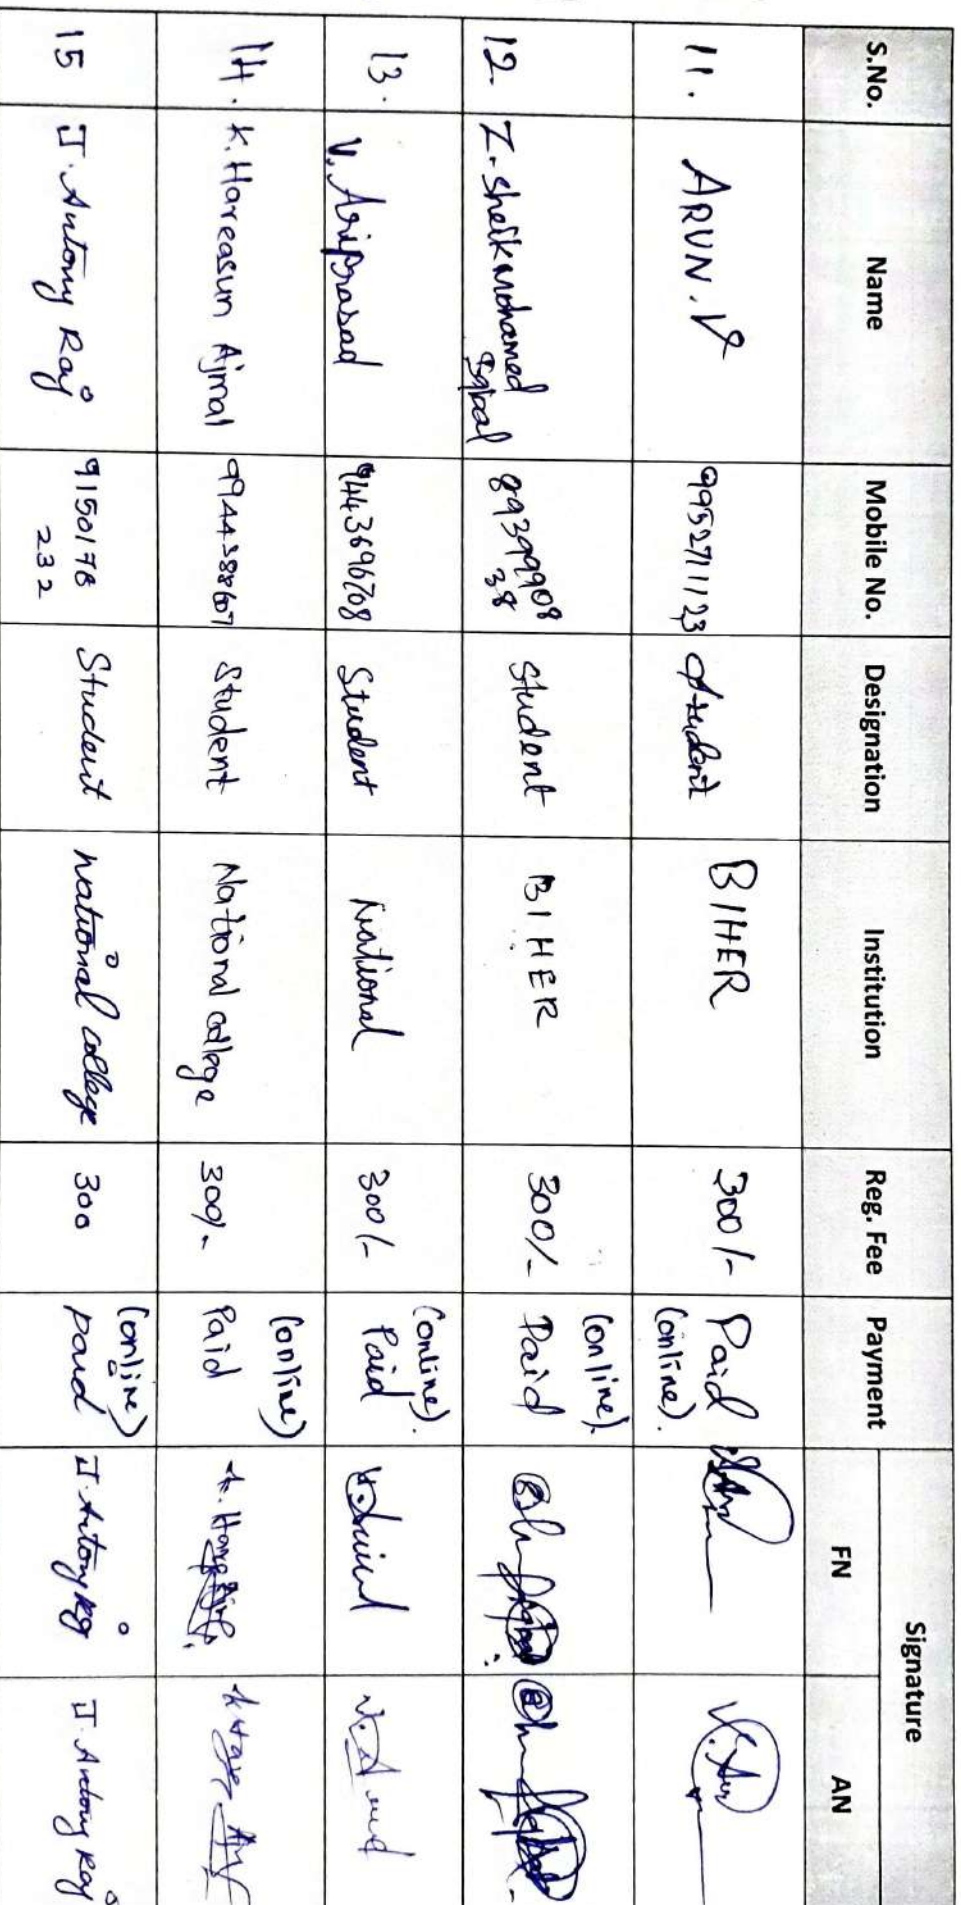 S.No. Name Mobile No. Designation Institution Reg. Fee Payment Signature
FN AN
11. ARUN.V 9952711123 Student BIHER 300/- Paid
(online).
12. Z. Sheik Mohamed Iqbal 89399908 38 Student BIHER 300/- (online).
Paid
13. V. Arriprasad 9443696708 Student National 300/- (online).
Paid
14. K. Hareasum Ajmal 9944388607 Student National college 300/- (online)
Paid
15 J. Antony Raj 9150178 232 Student National college 300 (online)
paid J. Antony Raj J. Antony Raj